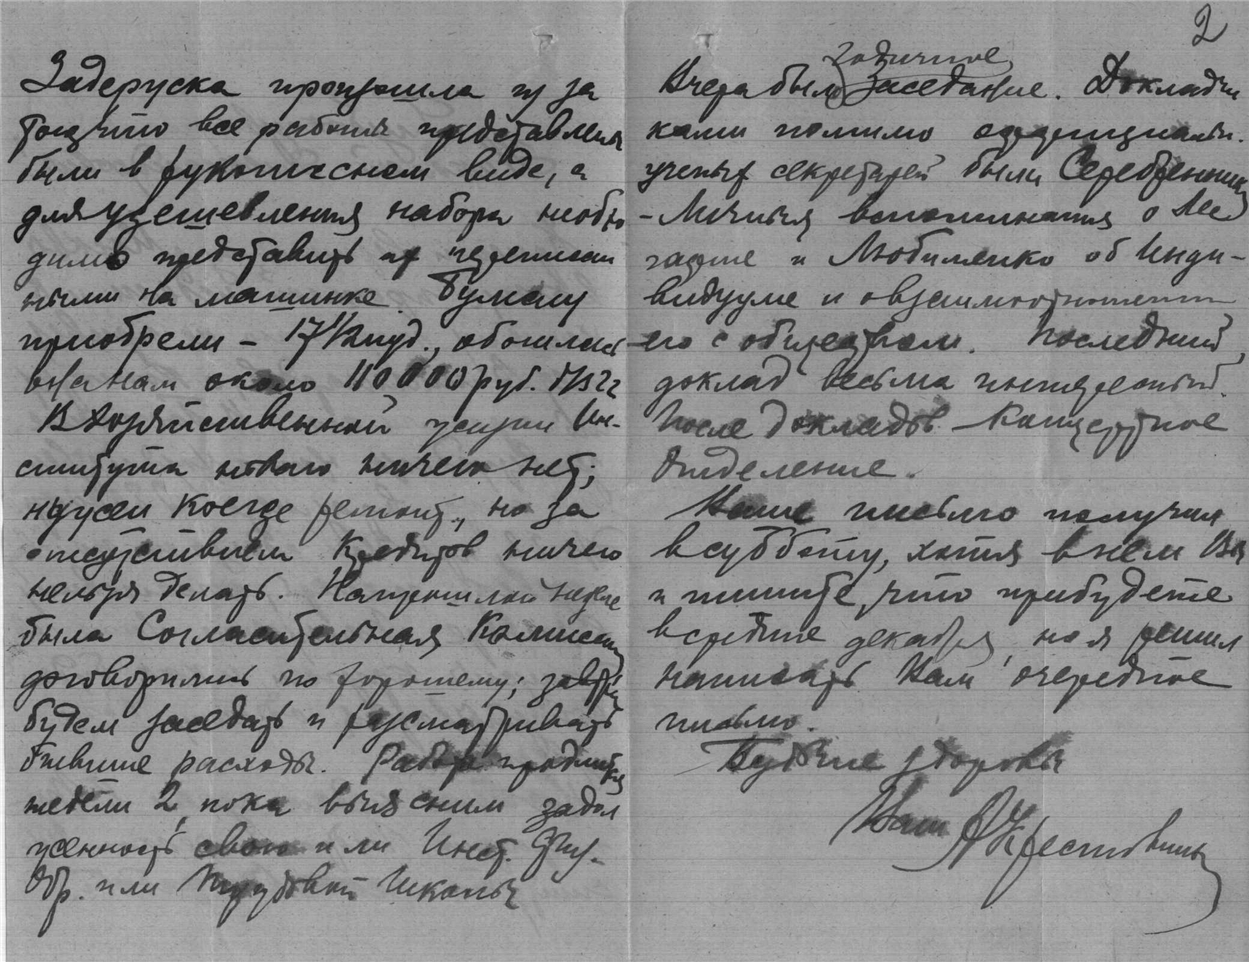 2
Задержка произошла из за
того что все работы представлены
были в рукописном виде, а
для удешевления набора необхо
димо представить их переписан
ными на машинке. Бумагу
приобрели – 17½ пуд., обошлась
она нам около 110000 руб.
В хозяйственной жизни Ин-
ститута нового ничего нет;
нужен кое где ремонт, но за
отсутствием кредитов ничего
нельзя делать. На прошлой неделе
была Согласительная Комиссия
договорились по хорошему; завтра
будем заседать и рассматривать
бывшие расходы. Работа продлится
недели 2, пока выясним задол
женность свою или Инст. Физ.
Обр. или Трудовой Школы
годичное
Вчера было заседание. Докладчи
ками помимо официальн.
ученых секретарей были Серебренников
– Личныя воспоминания о Лес
гафте и Любименко об Инди-
видууме и о взаимоотношении
его с обществом. Последний
доклад весьма интересный.
После докладов – Концертное
отделение.
Ваше письмо получил
в субботу, хотя в нем Вы
и пишите, что прибудете
в средине декабря, но я решил
написать Вам очередное
письмо.
Будьте здоровы
Ваш